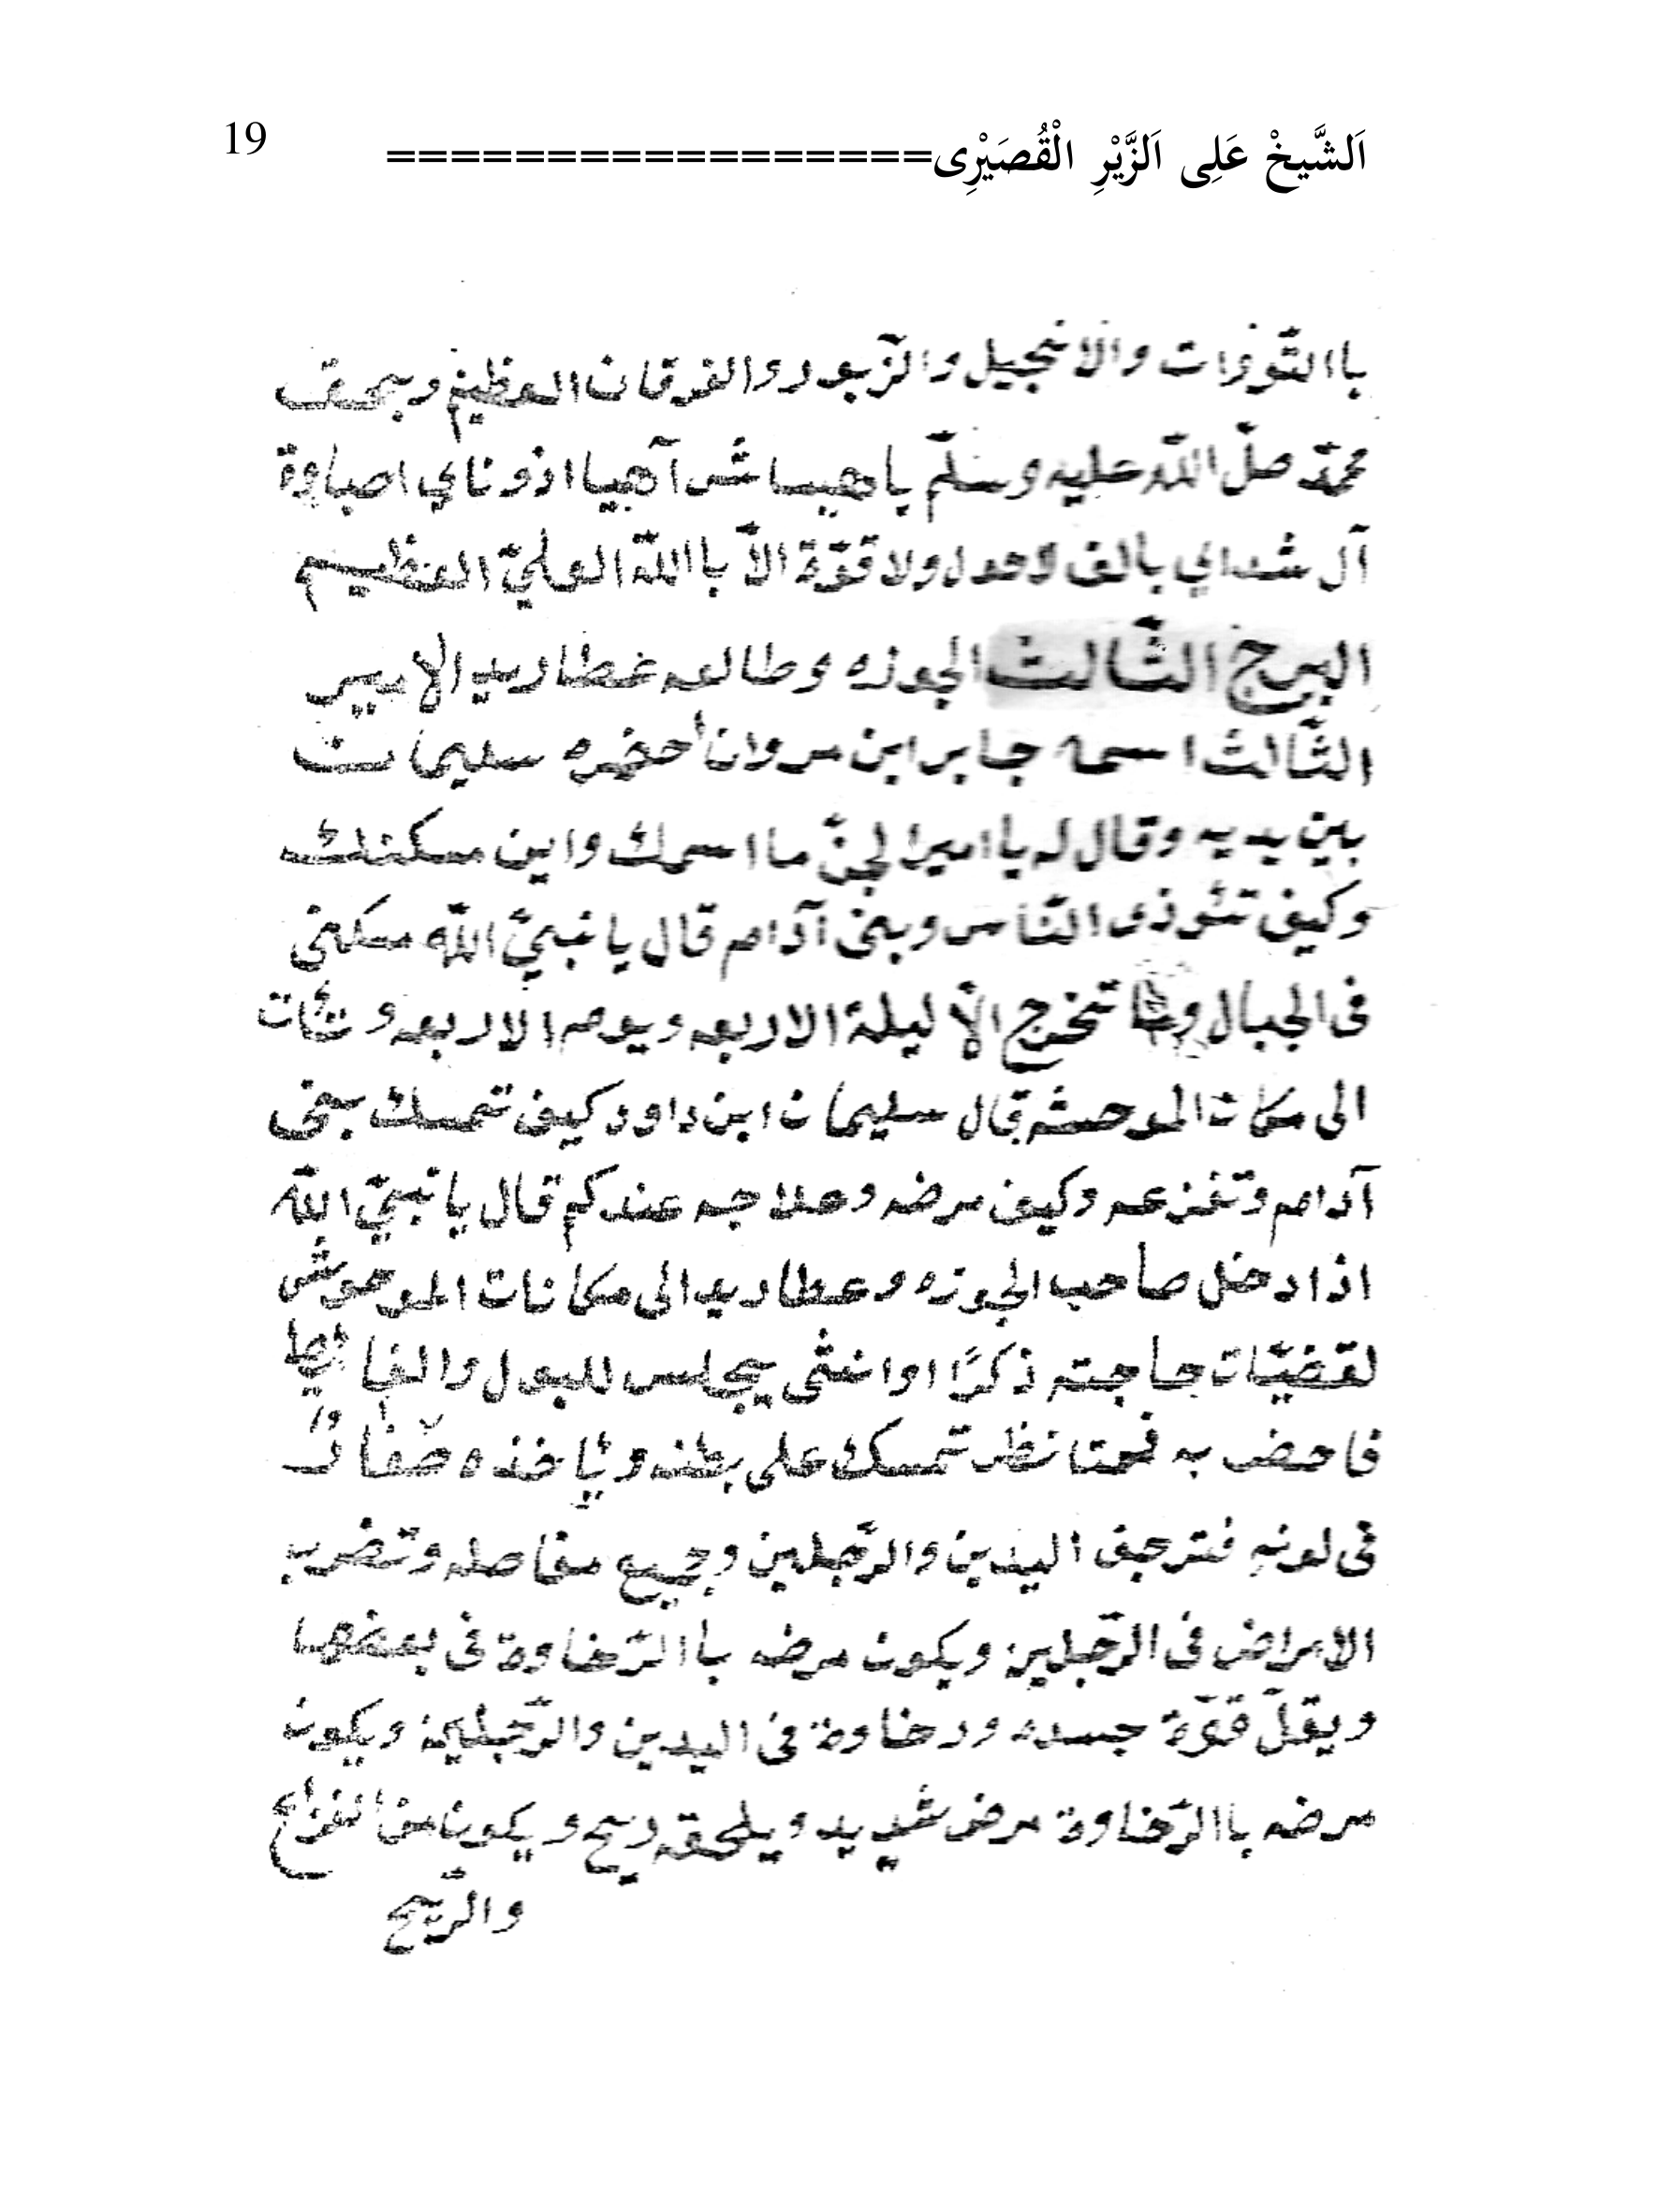 اَلشَّيخْ عَلِى اَلزَّيْرِ الْقُصَيْرِى================= 19
باالتّورات والانجيل والزّبور والفرقان العظيم وبحق
محمّد صلّ اللّه عليه وسلّم ياهيا شر آهيا اذوناي اصباوة
آل شداي بالف لاحول ولا قوّة الاّ باالله العليّ العظيم
البرج الثّالث الجوزه وطالعه عطاريد الامير
الثّالث اسمه جابر ابن مروان احضره سليمان
بين يديه وقال له يا امير الجنّ ما اسمك واين مسكنك
وكيف تئوذى النّاس وبنى آدام قال يا نبيّ اللّه مسكنى
فى الجبال وما تخرج الاّ ليلة الاربعه ويوم الاربعه و
الى مكان الموحشه قال سليمان ابن داود كيف تمسك بنى
آدام وتفزعه وكيف مرضه وعلاجه عندكم قال يا نبيّ اللّه
اذا دخل صاحب الجوزه وعطاريد الى مكانات الموحوش
لقضيّات حاجته ذكرًا او انثى يجلس للبول والغائط
فاحضر به فحتا نظر تمسك على بطنه ويأخذه صفار
فى لونه فترجف اليدين والرّجلين وجميع مفاصله وتضرب
الامراض فى الرّجلين ويكون مرضه باالرّخاوة فى بعضها
ويقلّ قوّة جسده ورخاوة فى اليدين والرّجلين ويكون
مرضه باالرّخاوة مرض شديد ويلحقه ريح ويكون من الفزاع
والرّيح